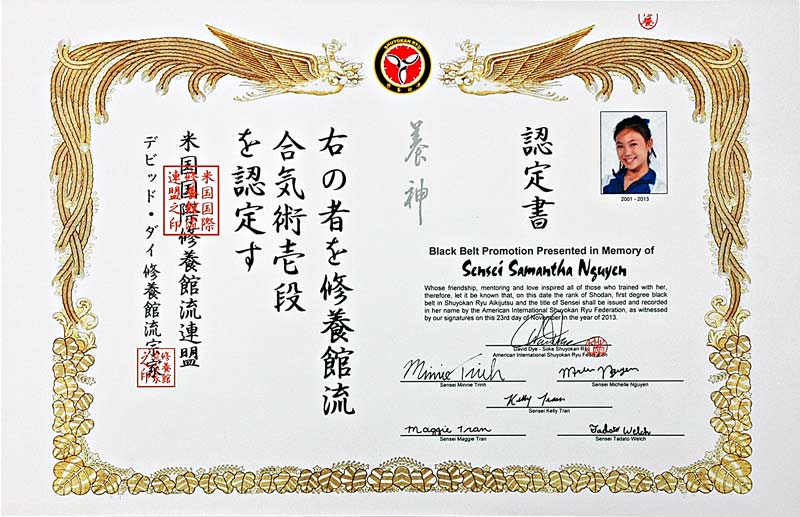 SHUYOKAN RYU
養神
認定書
右の者を修養館流
合気術壱段
を認定す
米国国際修養館流連盟
デビッド・ダイ 修養館流宗家
米国国際
修養館流
連盟之印
2001 - 2013
Black Belt Promotion Presented in Memory of
Sensei Samantha Nguyen
Whose friendship, mentoring and love inspired all of those who trained with her,
therefore, let it be known that, on this date the rank of Shodan, first degree black
belt in Shuyokan Ryu Aikijutsu and the title of Sensei shall be issued and recorded
in her name by the American International Shuyokan Ryu Federation, as witnessed
by our signatures on this 23rd day of November in the year of 2013.
David Dye - Soke Shuyokan Ryu
American International Shuyokan Ryu Federation
Minnie Trinh
Sensei Minnie Trinh
Sensei Michelle Nguyen
Kelly Tran
Sensei Kelly Tran
Maggie Tran
Sensei Maggie Tran
Tadato Welch
Sensei Tadato Welch